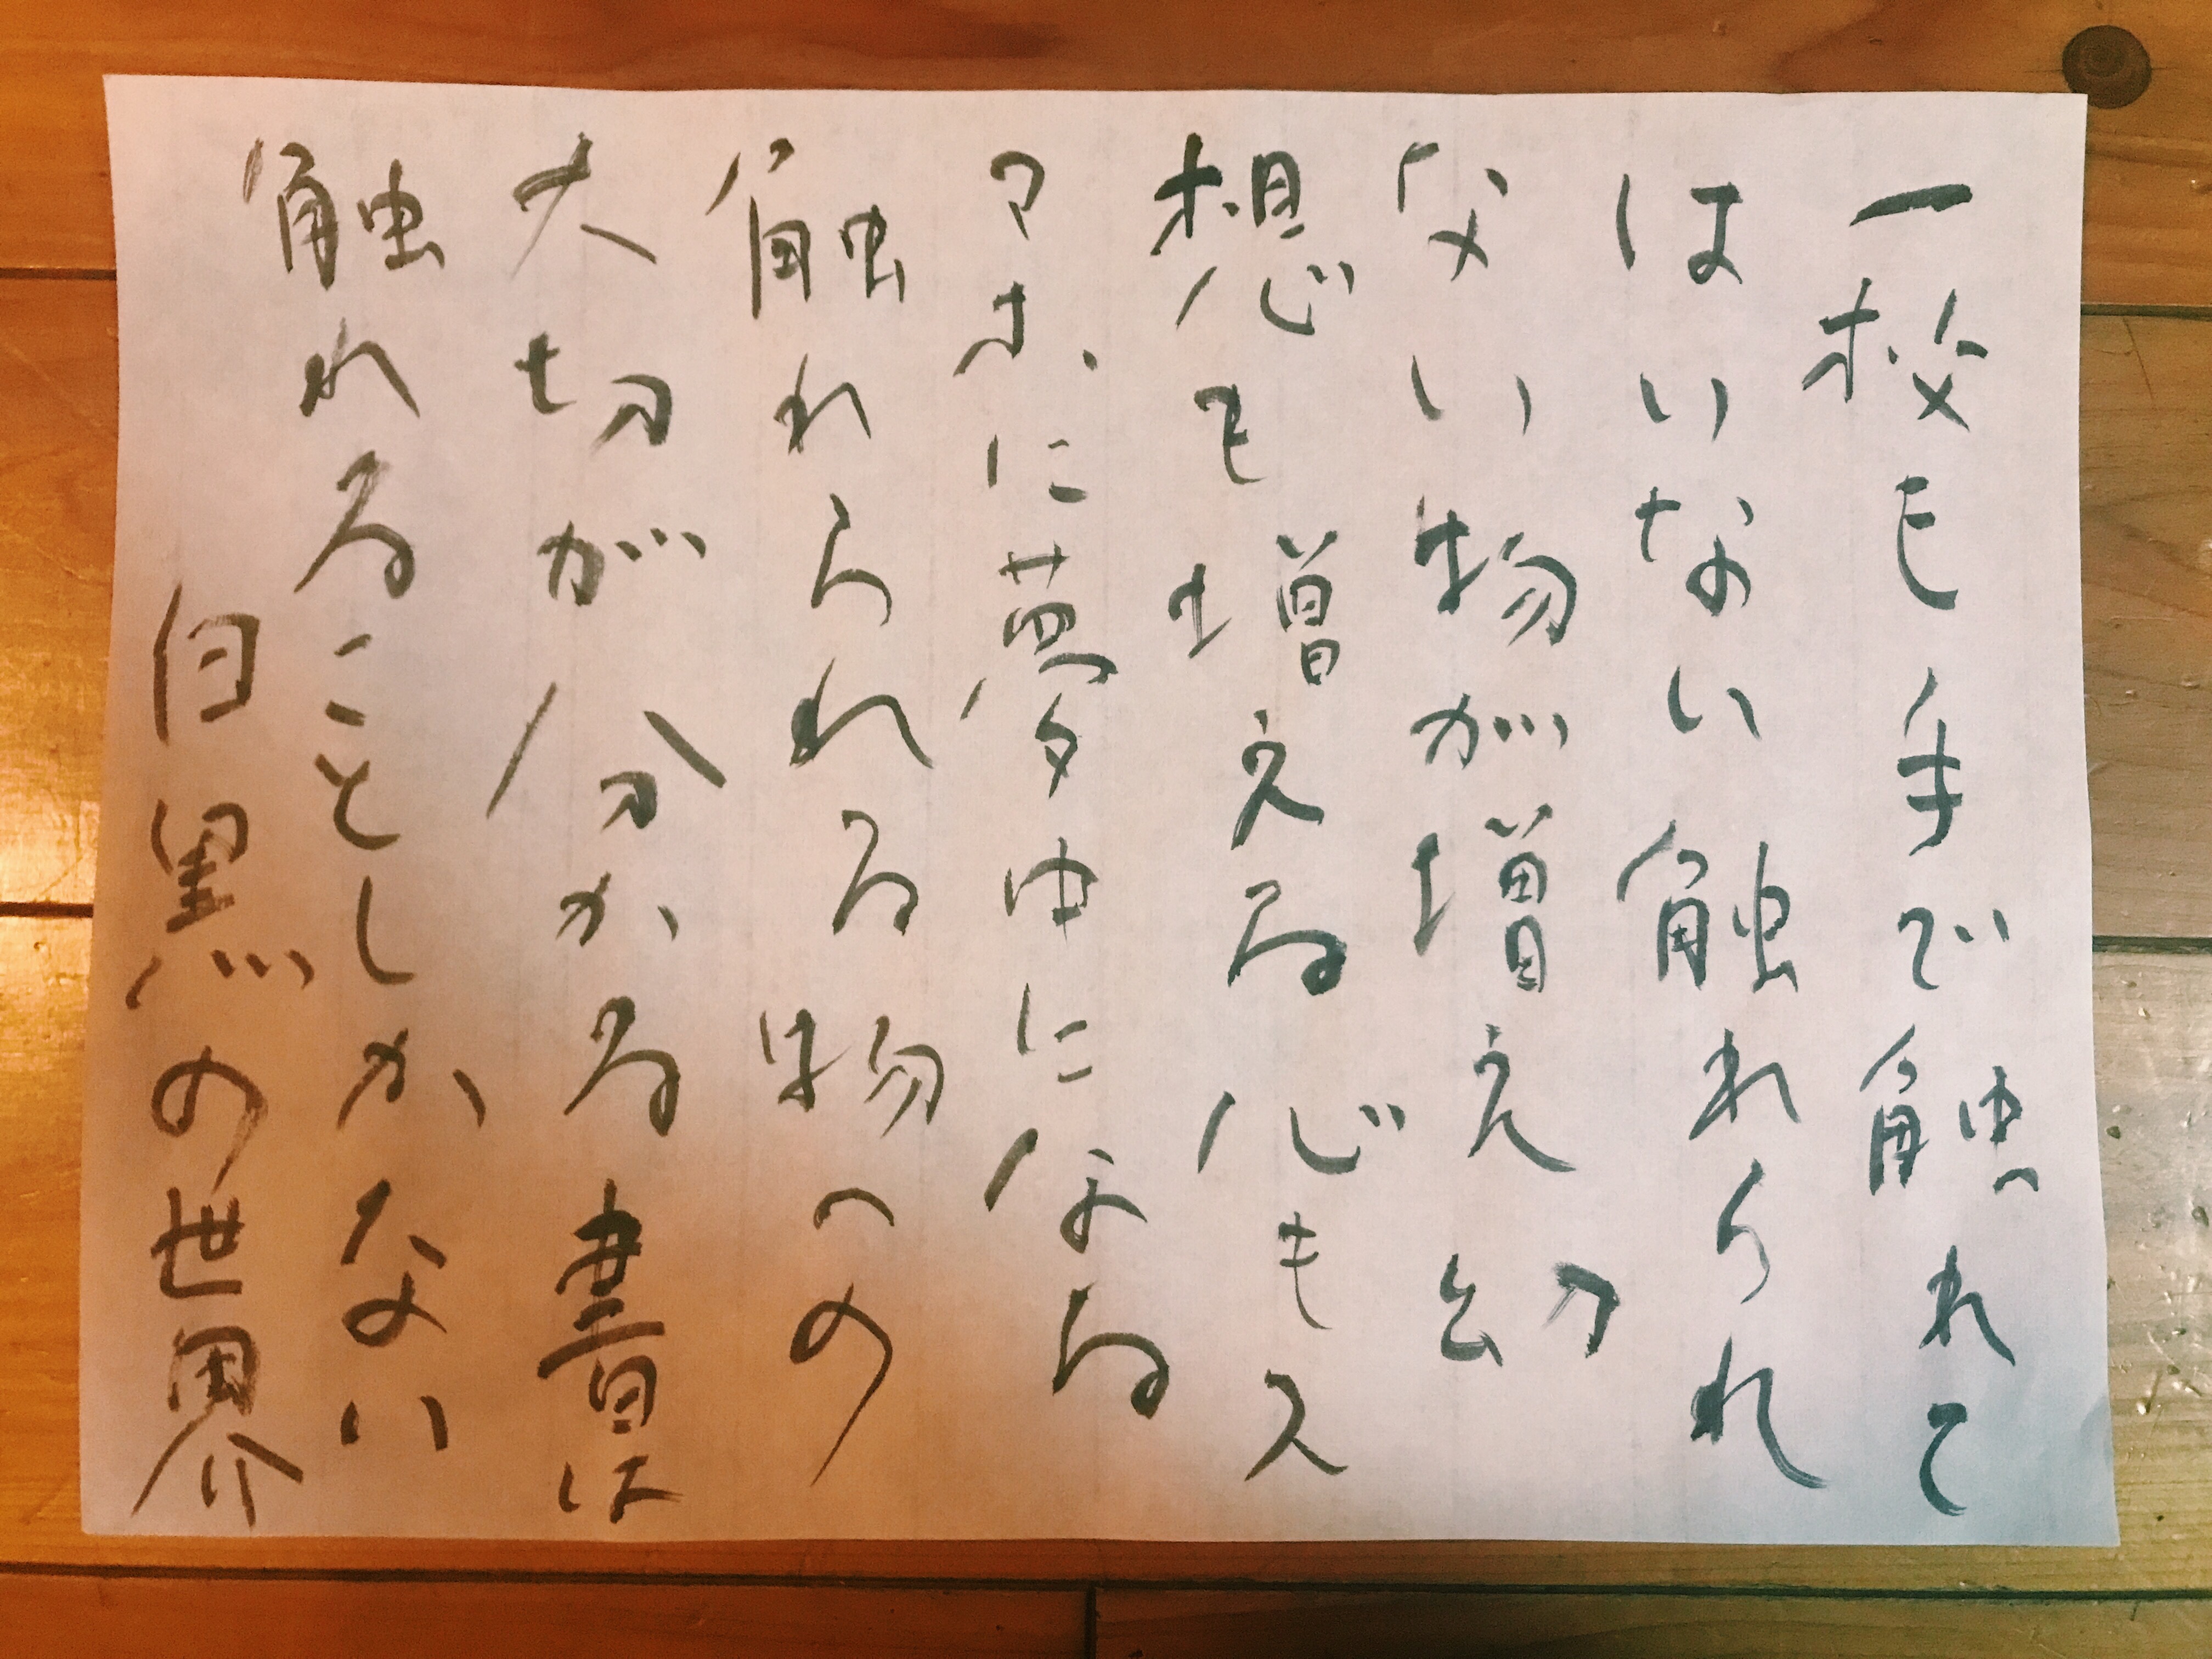 一枚も手で触れて
はいない触れられ
ない物が増え幻
想も増える心もス
マホに夢中になる
触れられる物への
大切が分かる書は
触れることしかない
白黒の世界